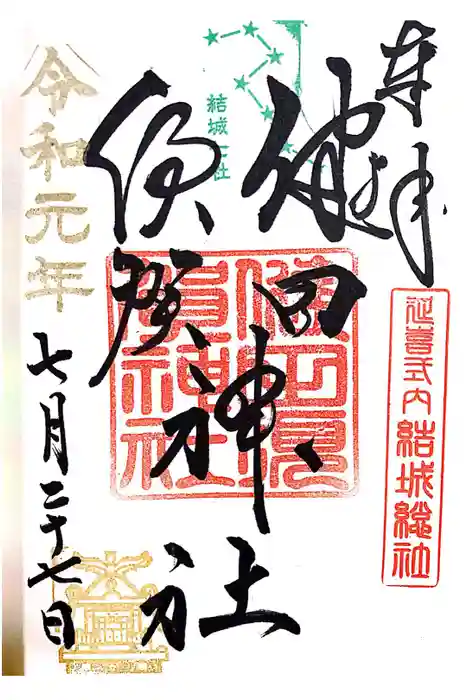 奉拝
延喜式内結城総社
結城七社
健田
須賀
神社
健田須
賀神社
令和元年
七月二十七日